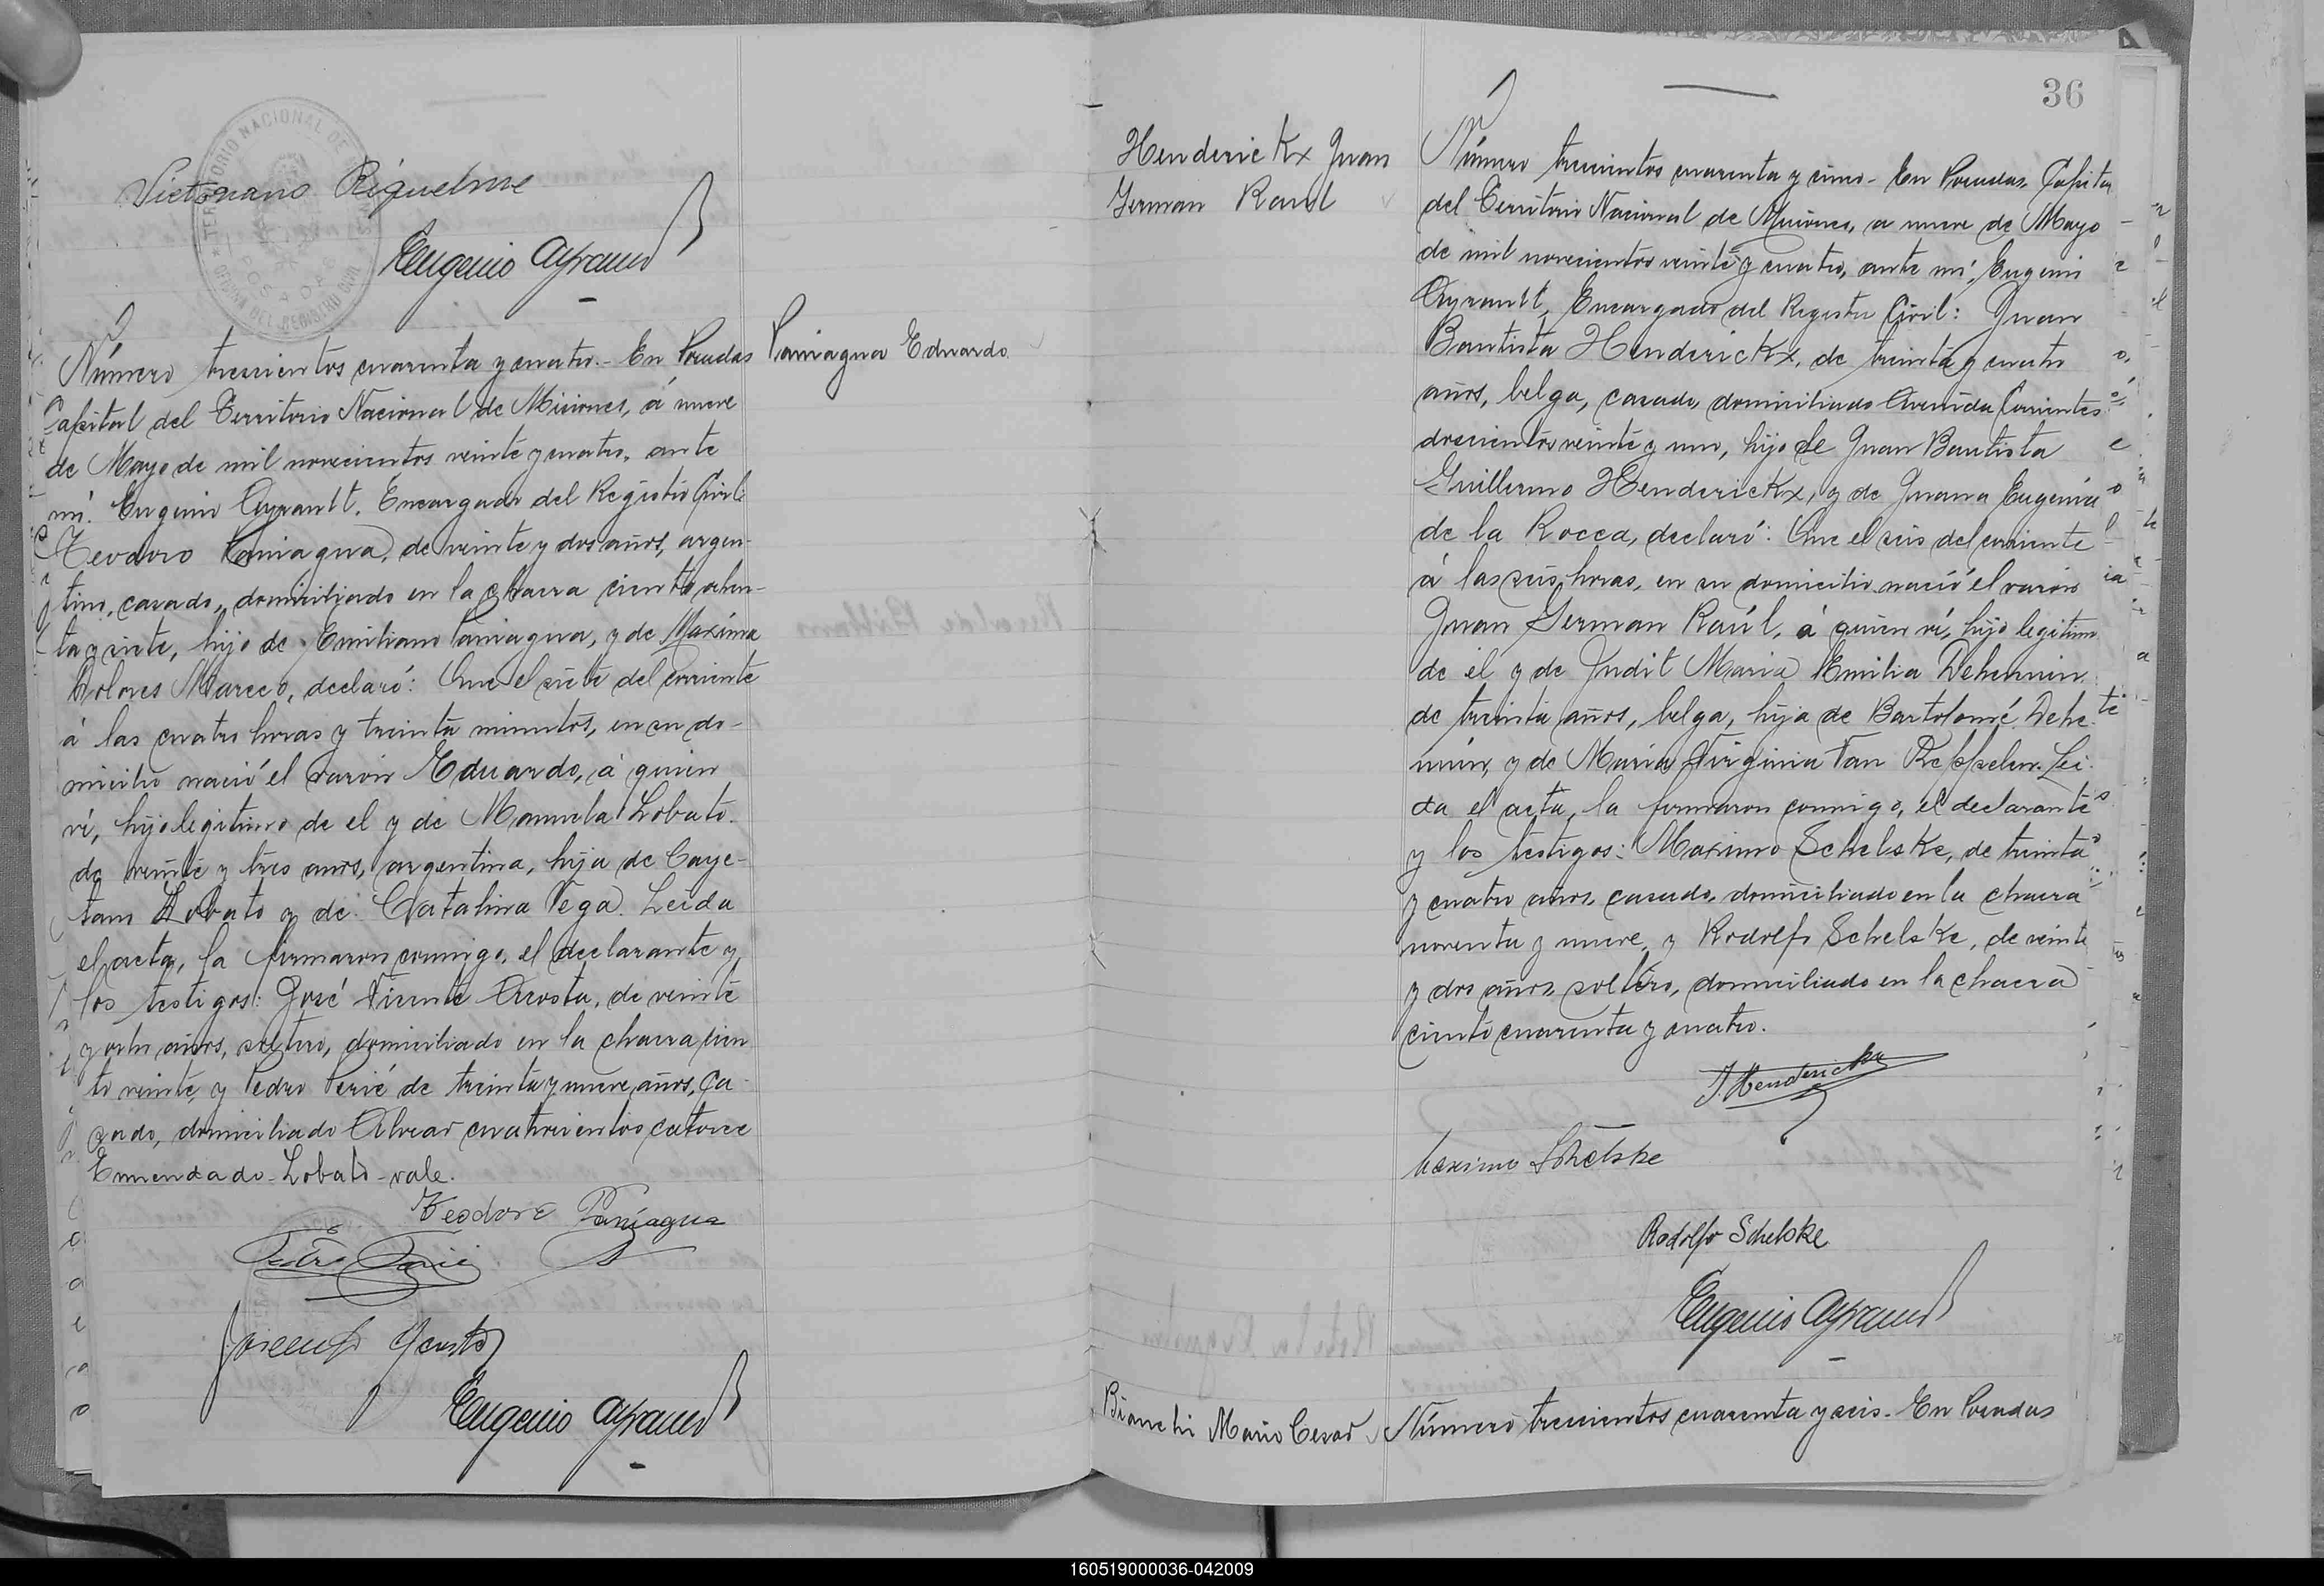 TERRITORIO NACIONAL DE MISIONES
OFICINA DEL REGISTRO CIVIL
POSADAS
Victoriano Riquelme
Eugenio Ayrault
Paniagua Eduardo
Número trescientos cuarenta y cuatro.- En Posadas
Capital del Territorio Nacional de Misiones, á nueve
de Mayo de mil novecientos veinte y cuatro, ante
mí. Eugenio Ayrault. Encargado del Registro Civil:
Teodoro Paniagua, de veinte y dos años, argen-
tino, casado, domiciliado en la chacra ciento ochen-
ta y siete, hijo de Emiliano Paniagua, y de Maxima
Dolores Mareco, declaró: Que el siete del corriente
á las cuatro horas y treinta minutos, en su do-
micilio nació el varón Eduardo, á quien
ví, hijo legitimo de el y de Manuela Lobato.
de veinte y tres anos, argentina, hija de Caye-
tano Lobato y de Catalina Vega. Leida
el acta, la firmaron conmigo, el declarante y
los testigos: José Vicente Acosta, de veinte
y ocho años, soltero, domiciliado en la chacra cien
to veinte, y Pedro Perié de treinta y nueve años, ca-
sado, domiciliado Alvear cuatrocientos catorce
Enmendado-Lobato-vale.
Teodoro Paniagua
Pedro Perié
Eugenio Ayrault
36
Henderickx Juan
German Raul
Número trescientos cuarenta y cinco- En Posadas, Capital
del Territorio Nacional de Misiones, a nueve de Mayo
de mil novecientos veinte y cuatro, ante mí; Eugenio
Ayrault, Encargado del Registro Civil: Juan
Bautista Henderickx, de treinta y cuatro
años, belga, casado, domiciliado Avenida Corrientes
doscientos veinte y uno, hijo de Juan Bautista
Guillermo Henderickx, y de Juana Eugenia
de la Rocca, declaró: Que el seis del corriente
á las seis horas, en su domicilio nació el varón
Juan German Raúl, á quien ví, hijo legitimo
de el y de Judit Maria Emilia Dehennin
de treinta años, belga, hija de Bartolomé Dehe-
nnin, y de Maria Virginia Van Reppelen. Lei-
da el acta, la firmaron conmigo, el declarante
y los testigos: Maximo Schelske, de treinta
y cuatro años, casado, domiciliado en la chacra
noventa y nueve, y Rodolfo Schelske, de veinte
y dos años, soltero, domiciliado en la chacra
ciento cuarenta y cuatro.
J. Henderickx
Maximo Schelske
Rodolfo Schelske
Eugenio Ayrault
Bianchi Mario Cesar
Número trescientos cuarenta y seis- En Posadas
160519000036-042009